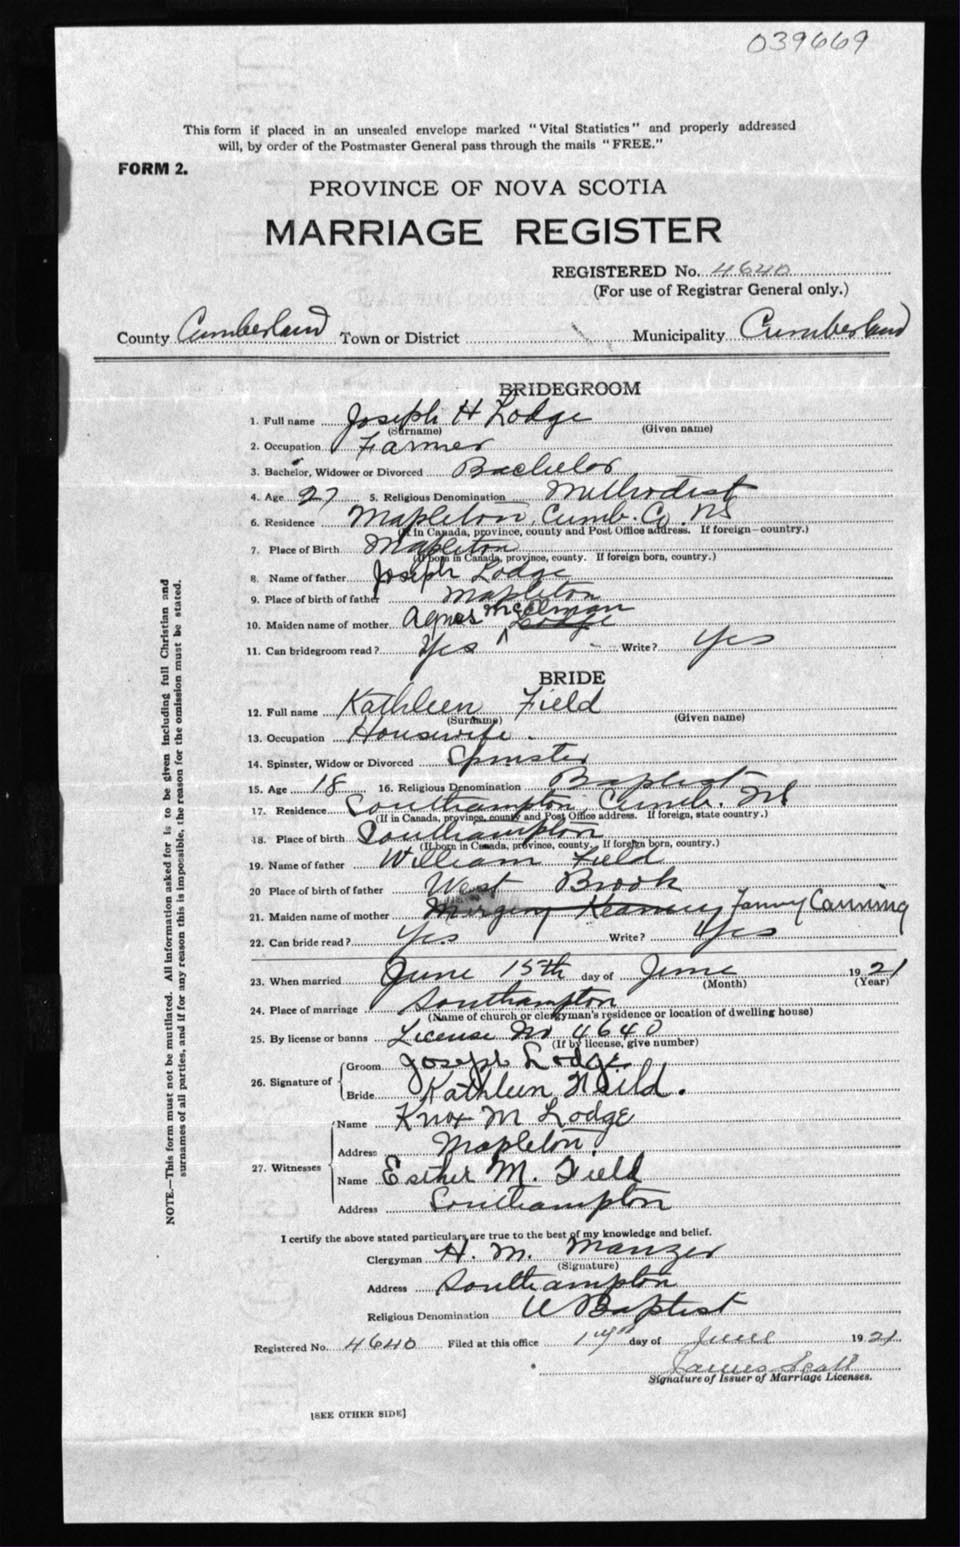 039669
This form if placed in an unsealed envelope marked "Vital Statistics" and properly addressed
will, by order of the Postmaster General pass through the mails "FREE."
FORM 2.
PROVINCE OF NOVA SCOTIA
MARRIAGE REGISTER
REGISTERED No. 4640
(For use of Registrar General only.)
County Cumberland Town or District Municipality Cumberland
BRIDEGROOM
1. Full name Joseph H Lodge
(Surname) (Given name)
2. Occupation Farmer
3. Bachelor, Widower or Divorced Bachelor
4. Age 27 5. Religious Denomination Methodist
6. Residence Mapleton, Cumb. Co. NS
(If in Canada, province, county and Post Office address. If foreign—country.)
7. Place of Birth Mapleton
(If born in Canada, province, county. If foreign born, country.)
8. Name of father Joseph Lodge
9. Place of birth of father Mapleton
10. Maiden name of mother Agnes McElman Lodge
11. Can bridegroom read? Yes Write? Yes
BRIDE
12. Full name Kathleen Field
(Surname) (Given name)
13. Occupation Housewife.
14. Spinster, Widow or Divorced Spinster
15. Age 18 16. Religious Denomination Baptist
17. Residence Southampton, Cumb. NS
(If in Canada, province, county and Post Office address. If foreign, state country.)
18. Place of birth Southampton
(If born in Canada, province, county. If foreign born, country.)
19. Name of father William Field
20 Place of birth of father West Brook
21. Maiden name of mother Margery Kearney Fanny Canning
22. Can bride read? Yes Write? Yes
23. When married June 15th day of June 1921
(Month) (Year)
24. Place of marriage Southampton
(Name of church or clergyman's residence or location of dwelling house)
25. By license or banns License No 4640
(If by license, give number)
26. Signature of Groom Joseph Lodge
Bride Kathleen Feild.
27. Witnesses Name Knox M Lodge
Address Mapleton
Name Esther M. Field
Address Southampton
I certify the above stated particulars are true to the best of my knowledge and belief.
Clergyman H. M. Manzer
(Signature)
Address Southampton
Religious Denomination U Baptist
Registered No. 4640 Filed at this office day of June 1921
James Scott
Signature of Issuer of Marriage Licenses.
[SEE OTHER SIDE]
NOTE.—This form must not be mutilated. All information asked for is to be given including full Christian and
surnames of all parties, and if for any reason this is impossible, the reason for the omission must be stated.